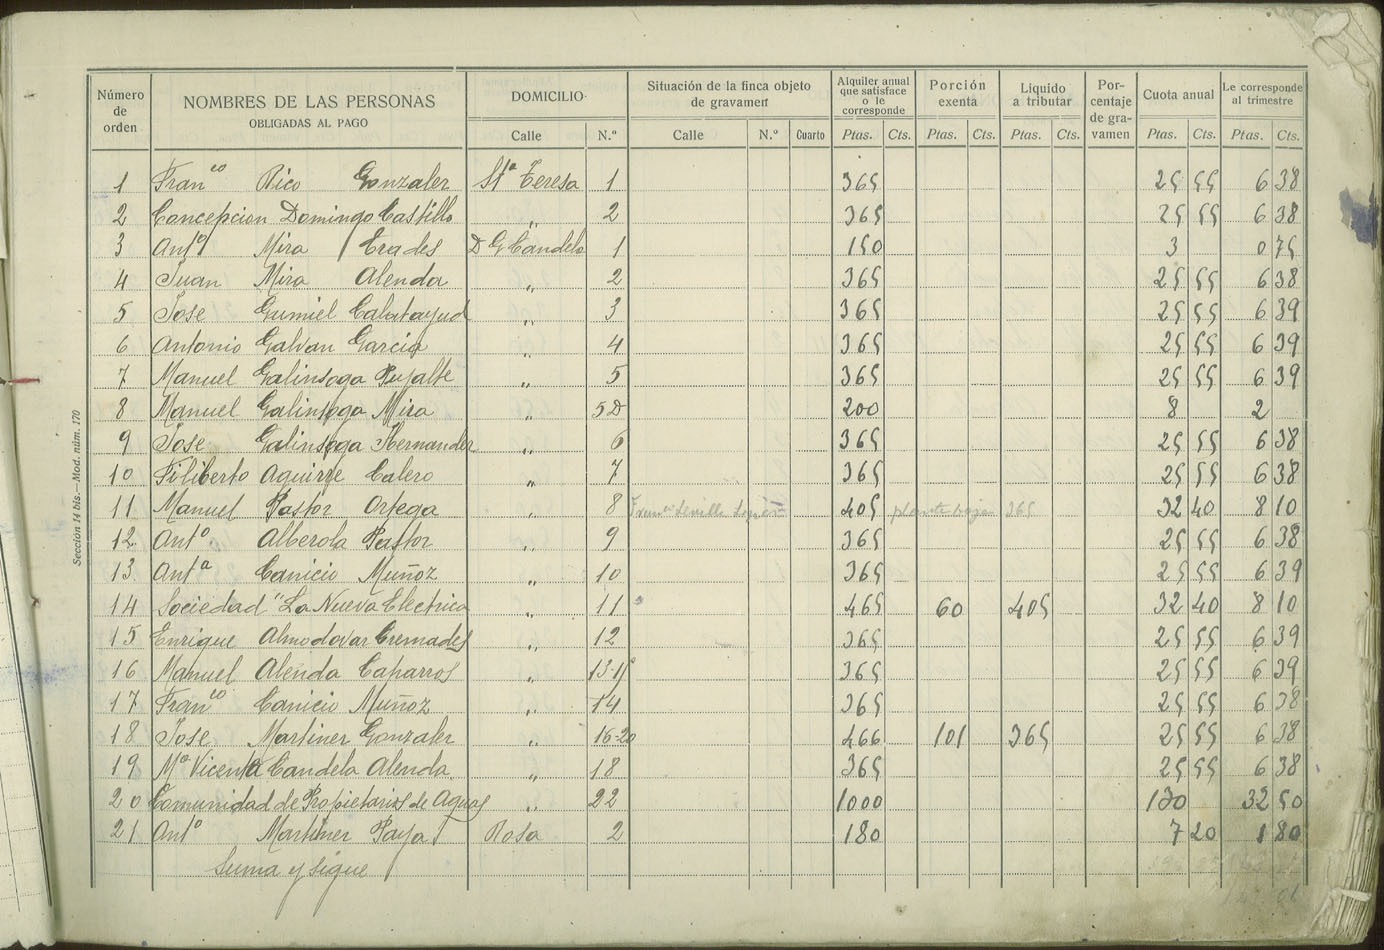 Número de orden
NOMBRES DE LAS PERSONAS
OBLIGADAS AL PAGO
DOMICILIO
Calle N.º
Situación de la finca objeto de gravamen
Calle N.º Cuarto
Alquiler anual que satisface o le corresponde
Ptas. Cts.
Porción exenta
Ptas. Cts.
Líquido a tributar
Ptas. Cts.
Porcentaje de gravamen
Cuota anual
Ptas. Cts.
Le corresponde al trimestre
Ptas. Cts.
1 Franco Rico Gonzalez Sta Teresa 1 365 25 55 6 38
2 Concepcion Domingo Castillo " 2 365 25 55 6 38
3 Anto Mira Erades D G Candela 1 150 3 0 75
4 Juan Mira Alenda " 2 365 25 55 6 38
5 Jose Gumiel Calatayud " 3 365 25 55 6 39
6 Antonio Galvan Garcia " 4 365 25 55 6 39
7 Manuel Galinsoga Pujalte " 5 365 25 55 6 39
8 Manuel Galinsoga Mira " 5D 200 8 2
9 Jose Galinsoga Hernandez " 6 365 25 55 6 38
10 Filiberto Aguirre Calero " 7 365 25 55 6 38
11 Manuel Pastor Ortega " 8 405 planta baja 365 32 40 8 10
12 Anto Alberola Pastor " 9 365 25 55 6 38
13 Anta Canicio Muñoz " 10 365 25 55 6 39
14 Sociedad "La Nueva Electrica " 11 465 60 405 32 40 8 10
15 Enrique Almodovar Cremades " 12 365 25 55 6 39
16 Manuel Alenda Caparros " 13-1º 365 25 55 6 39
17 Franco Canicio Muñoz " 14 365 25 55 6 38
18 Jose Martinez Gonzalez " 16-20 466 101 365 25 55 6 38
19 Ma Vicenta Candela Alenda " 18 365 25 55 6 38
20 Comunidad de Propietarios de Aguas " 22 1000 130 32 50
21 Anto Martinez Paya Rosa 2 180 7 20 1 80
Suma y sigue
Sección 14 bis.—Mod. núm. 170